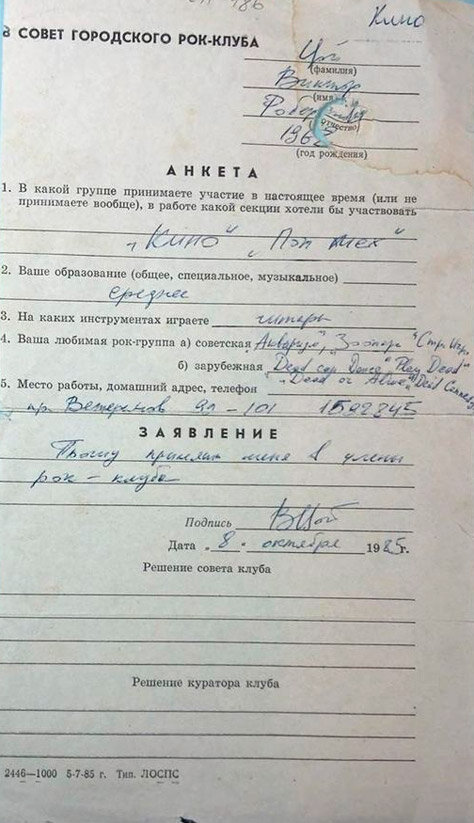 Кино
В СОВЕТ ГОРОДСКОГО РОК-КЛУБА
Цой
(фамилия)
Виктор
(имя)
(отчество)
1962
(год рождения)
АНКЕТА
1. В какой группе принимаете участие в настоящее время (или не
принимаете вообще), в работе какой секции хотели бы участвовать
„Кино" „Поп мех"
2. Ваше образование (общее, специальное, музыкальное)
среднее
3. На каких инструментах играете гитара
4. Ваша любимая рок-группа а) советская „Аквариум", „Зоопарк" „Стр. Игры"
б) зарубежная „Dead can Dance" „Play Dead"
5. Место работы, домашний адрес, телефон „Dead or Alive"
пр. Ветеранов 99-101 1522845
ЗАЯВЛЕНИЕ
Прошу принять меня в члены
рок-клуба
Подпись ВЦой
Дата „8" октября 1985г.
Решение совета клуба
Решение куратора клуба
2446—1000 5-7-85 г. Тип. ЛОСПС